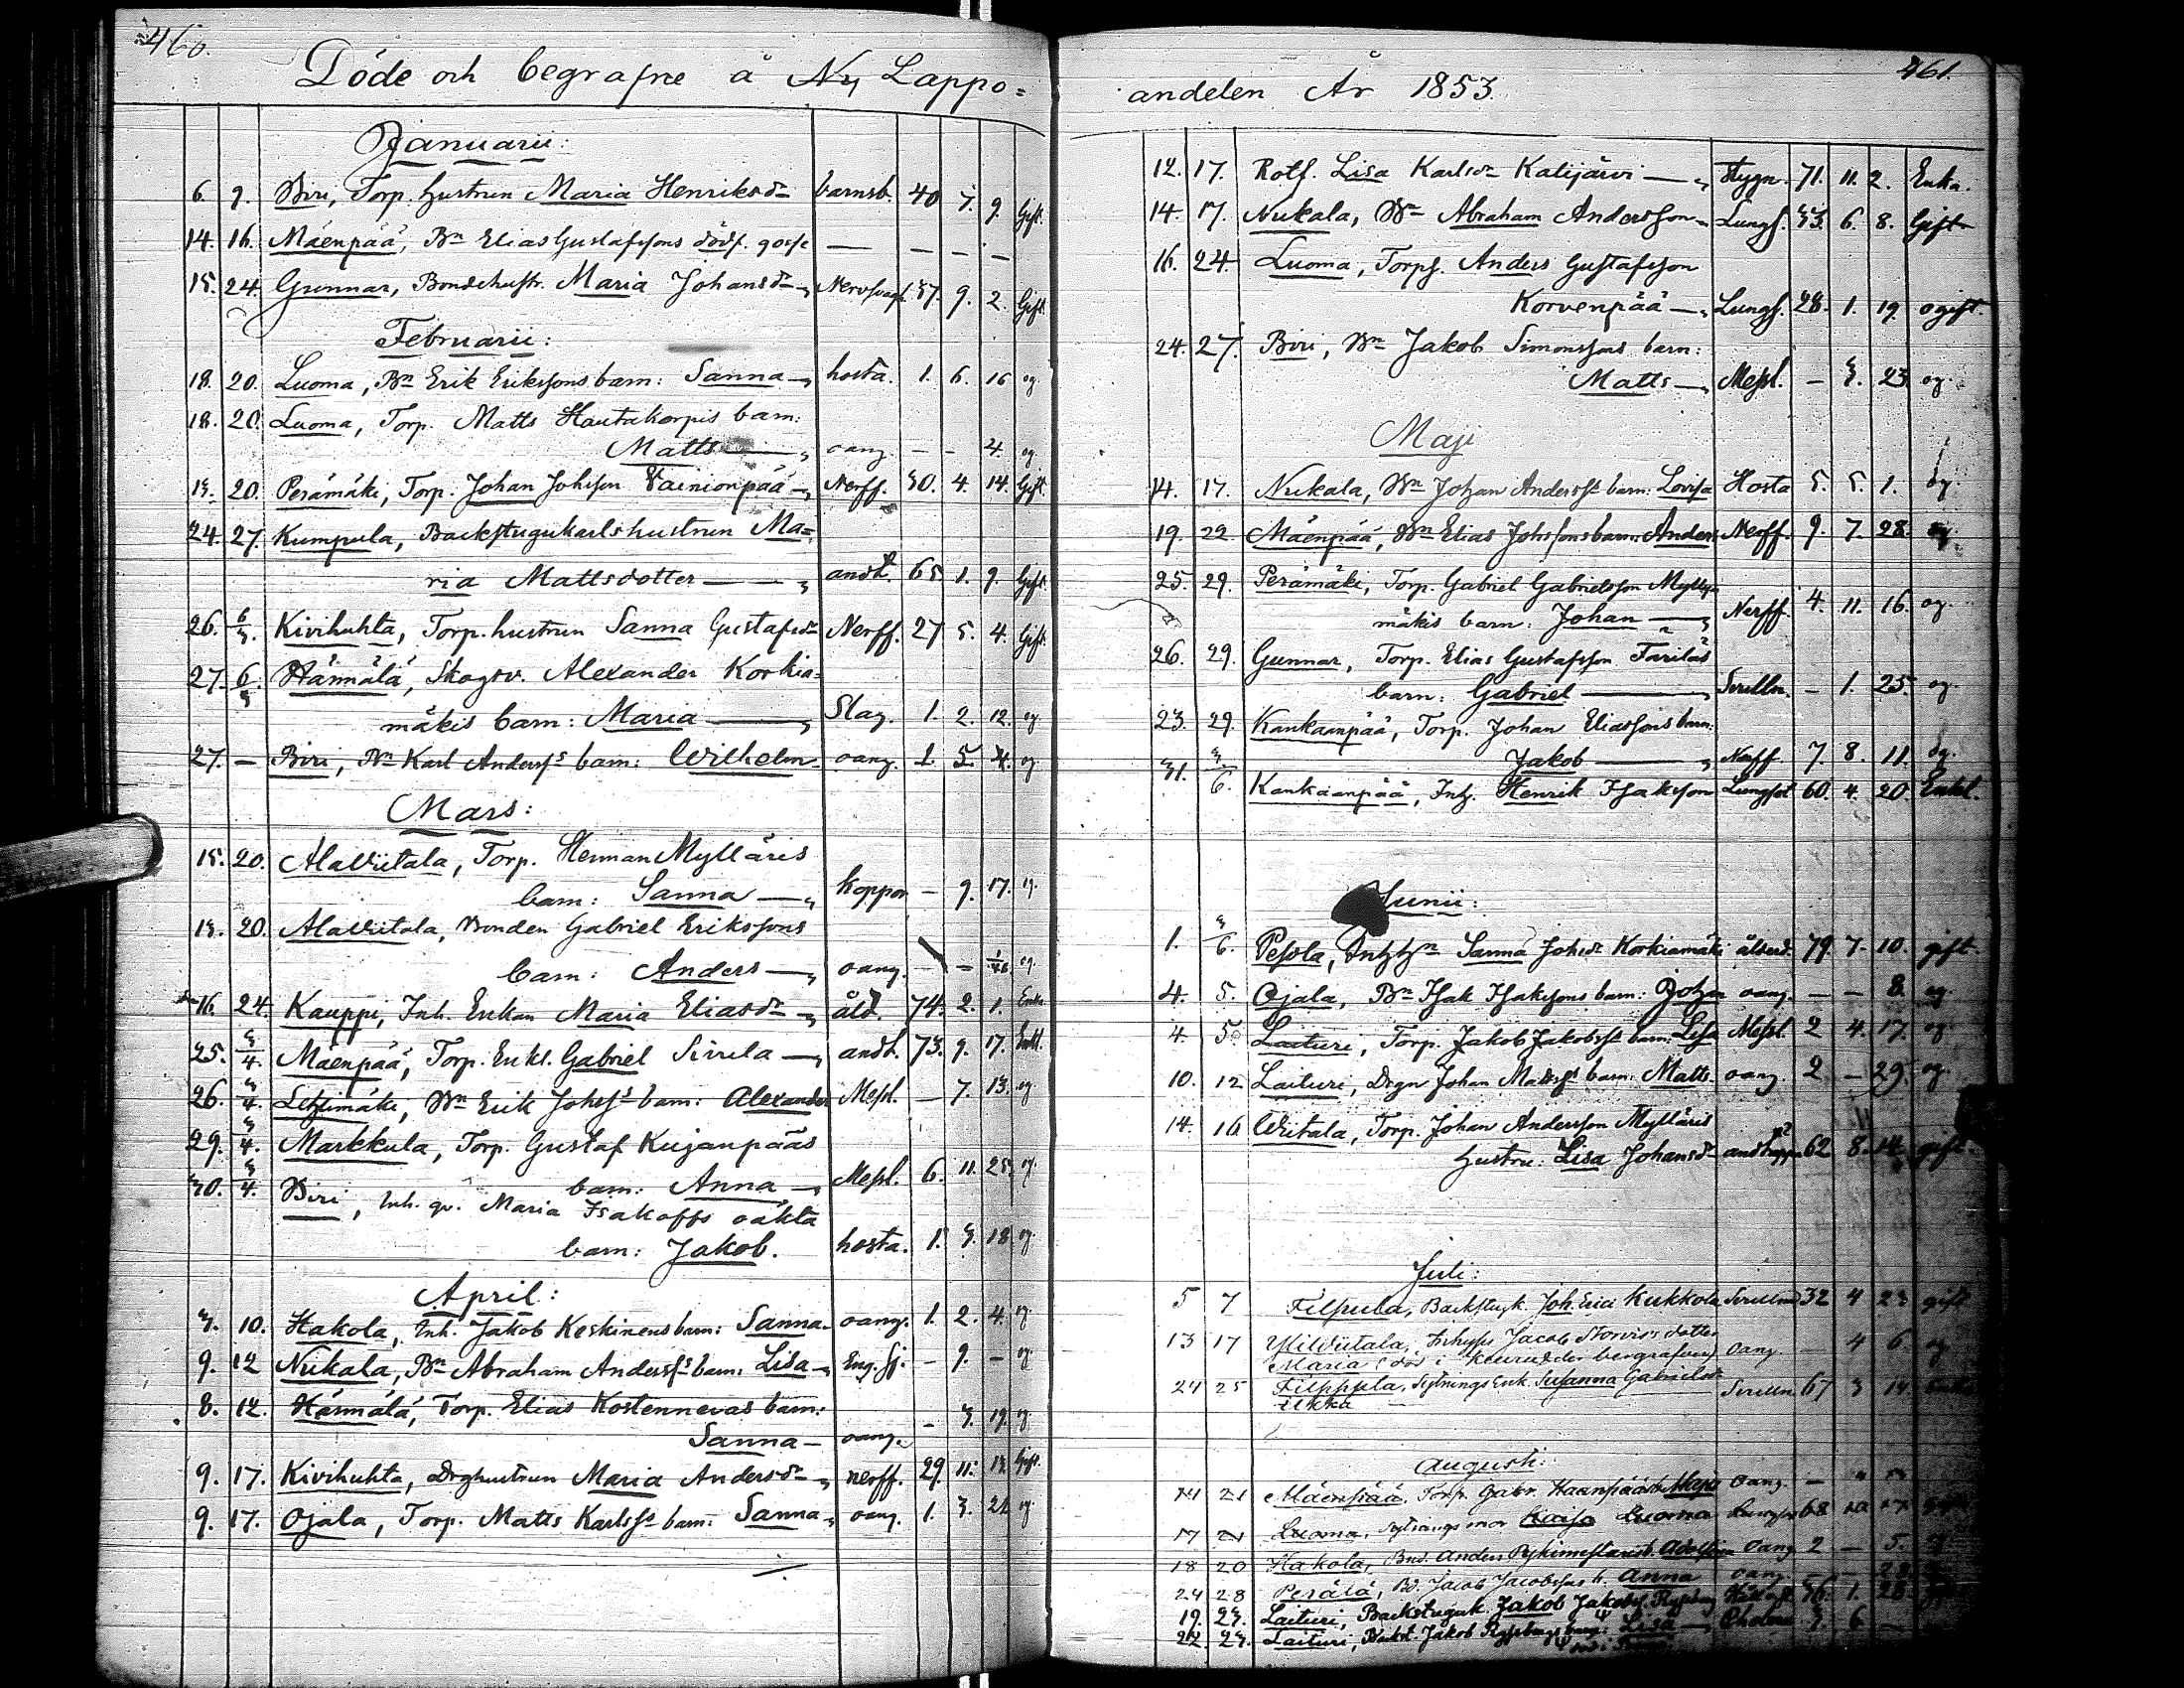 460.
Döde och begrafne å Ny Lappo=
Januarii:
6. 9. Biri, Torp. hustrun Maria Henriksdr barnsb. 40 7. 9. Gift.
14. 16. Mäenpää, Bn Elias Gustafssons dödf. gosse — — — —
15. 24. Gunnar, Bondehustr. Maria Johansdr 37. 9. 2. Gift.
Februarii:
18. 20. Luoma, Bn Erik Erikssons barn: Sanna hosta. 1. 6. 16 og
18. 20. Luoma, Torp. Matts Hautakorpis barn:
Matts oang. — — 4. og
13. 20. Perämäki, Torp. Johan Johsson Vainionpää Nerff. 30. 4. 14. Gift.
24. 27. Kumpula, Backstugukarlshustrun Ma=
ria Mattsdotter andt. 65 1. 9. Gift.
26. 6/3. Kivihuhta, Torp. hustrun Sanna Gustafsdr Nerff. 27 5. 4. Gift
27. 6/3 Hännälä, Skogsv. Alexander Korkia=
mäkis barn: Maria Slag. 1. 2. 12. og
27. — Biri, Bn Karl Anderss barn: Wilhelm oang. 1. 5. 4. og
Mars:
15. 20. Alawiitala, Torp. Herman Mylläris
barn: Sanna koppor — 9. 17. og.
13. 20. Alawiitala, Bonden Gabriel Erikssons
barn: Anders oang. — — og.
16. 24. Kauppi, Inh. Enkan Maria Eliasdr åld. 74. 2. 1. Enka
25. 3/4. Mäenpää, Torp. Enkl. Gabriel Sirrila andt. 73. 9. 17. Enkl.
26. 3/4. Lehtimäki, Bn Erik Johss barn: Alexander Messl. — 7. 13. og
29. 3/4. Markkula, Torp. Gustaf Kujanpääs
barn: Anna Messl. 6. 11. 25. og.
30. 3/4. Biri, Inh. qv. Maria Isakoffs oäkta
barn: Jakob. hosta. 1. 3. 18 og.
April:
3. 10. Hakola, Inh. Jakob Keskinens barn: Sanna oang. 1. 2. 4. og
9. 12 Nukala, Bn Abraham Anderss barn: Lisa Eng. sj. — 9. — og
8. 12. Härmälä, Torp. Elias Kostennevas barn:
Sanna — oang. — 3. 19. og
9. 17. Kivihuhta, Drghustrun Maria Andersdr nerff. 29. 11. 12 Gift.
9. 17. Ojala, Torp. Matts Karlss barn: Sanna oang. 1. 3. 21 og
461.
andelen År 1853.
12. 17. Rotf. Lisa Karlsdr Katijärvi Stygn. 71. 11. 2. Enka.
14. 17. Nukala, Bn Abraham Andersson Lungs. 33. 6. 8. Gift
16. 24. Luoma, Torps. Anders Gustafsson
Korvenpää Lungs. 28. 1. 19. ogift.
24. 27. Biri, Bn Jakob Simonssons barn:
Matts Messl. — 3. 23 og.
Maji
14. 17. Nukala, Bn Johan Anderss barn: Lovisa Hosta 5. 5. 1. og.
19. 22. Mäenpää, Bn Elias Johssons barn: Anders Nerff. 9. 7. 28. og
25. 29. Perämäki, Torp. Gabriel Gabrielsson Mylly=
mäkis barn: Johan Nerff. 4. 11. 16. og.
26. 29. Gunnar, Torp. Elias Gustafsson Farilas
barn: Gabriel — 1. 25. og
23. 29. Kankaanpää, Torp. Johan Eliassons barn:
Jakob Nerff 7. 8. 11. og.
31. 3/6. Kankaanpää, Inh. Henrik Isaksson Lungsot 60. 4. 20. Enkl.
Junii:
1. 3/6. Pessola, Sanna Johsdr Korkiamäki ålderd. 79. 7. 10. gift.
4. 5. Ojala, Bn Isak Isakssons barn: Johan oang. — — 8. og
4. 5. Laituri, Torp. Jakob Jakobss barn: Lisa Messl. 2 4. 17. og
10. 12 Laituri, Drgn Johan Matss barn: Matts. oang. 2 — 29. og.
14. 16 Wiitala, Torp. Johan Andersson Mylläris
hustru: Lisa Johansdr 62 8. 14. gift.
Juli:
5 7 Filpula, Backstugk. Joh. Erici Kukkola 32 4 23 gift
13 17 Yliwiitala, Jacob dotter
Maria oang. — 4 6 og
24 25 Filpppula, Sytnings Enk. Susanna Gabrielsdr
Ukka — 67 3 14
Augusti:
21 Mäenpää, Torp. Gabr. Haanpääs b. Maja oang. —
Luoma, Sytnings mor Luoma 68
18 20 Hakola, Bnd. Anders oang 2 — 5.
24 28 Perälä, Bd. Jacob Jacobssons b. Anna oang.
19. 23. Laituri, Backstuguk. Jakob 56. 1. 28.
22. 23. Laituri, Backst. Jakob barn: Lisa 3. 6 —